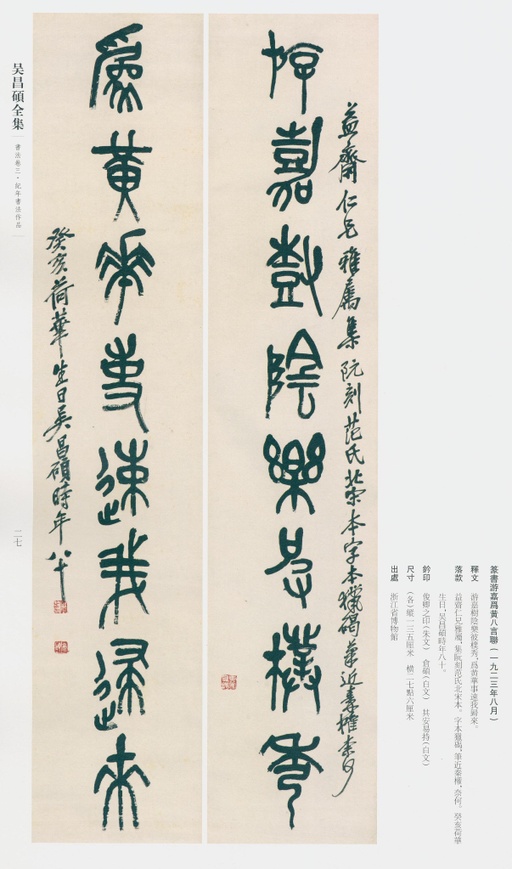 篆書游嘉爲黄八言聯(一九二三年八月)
釋文　游嘉樹陰樂彼樸秀,爲黄華事速我歸來。
落款　益齋仁兄雅屬,集阮刻范氏北宋本。字本獵碣,筆近秦權,奈何。癸亥荷華
生日,吴昌碩時年八十。
鈐印　俊卿之印(朱文)　倉碩(白文)　其安易持(白文)
尺寸　(各)縱一三五厘米　橫二七點六厘米
出處　浙江省博物館
益齋仁兄雅屬集阮刻范氏北宋本字本獵碣筆近秦權柰何
斿嘉尌陰樂彼樸秀
爲黄華事速我歸來
癸亥荷華生日吴昌碩時年八十
吴昌碩全集
書法卷三·紀年書法作品
二七